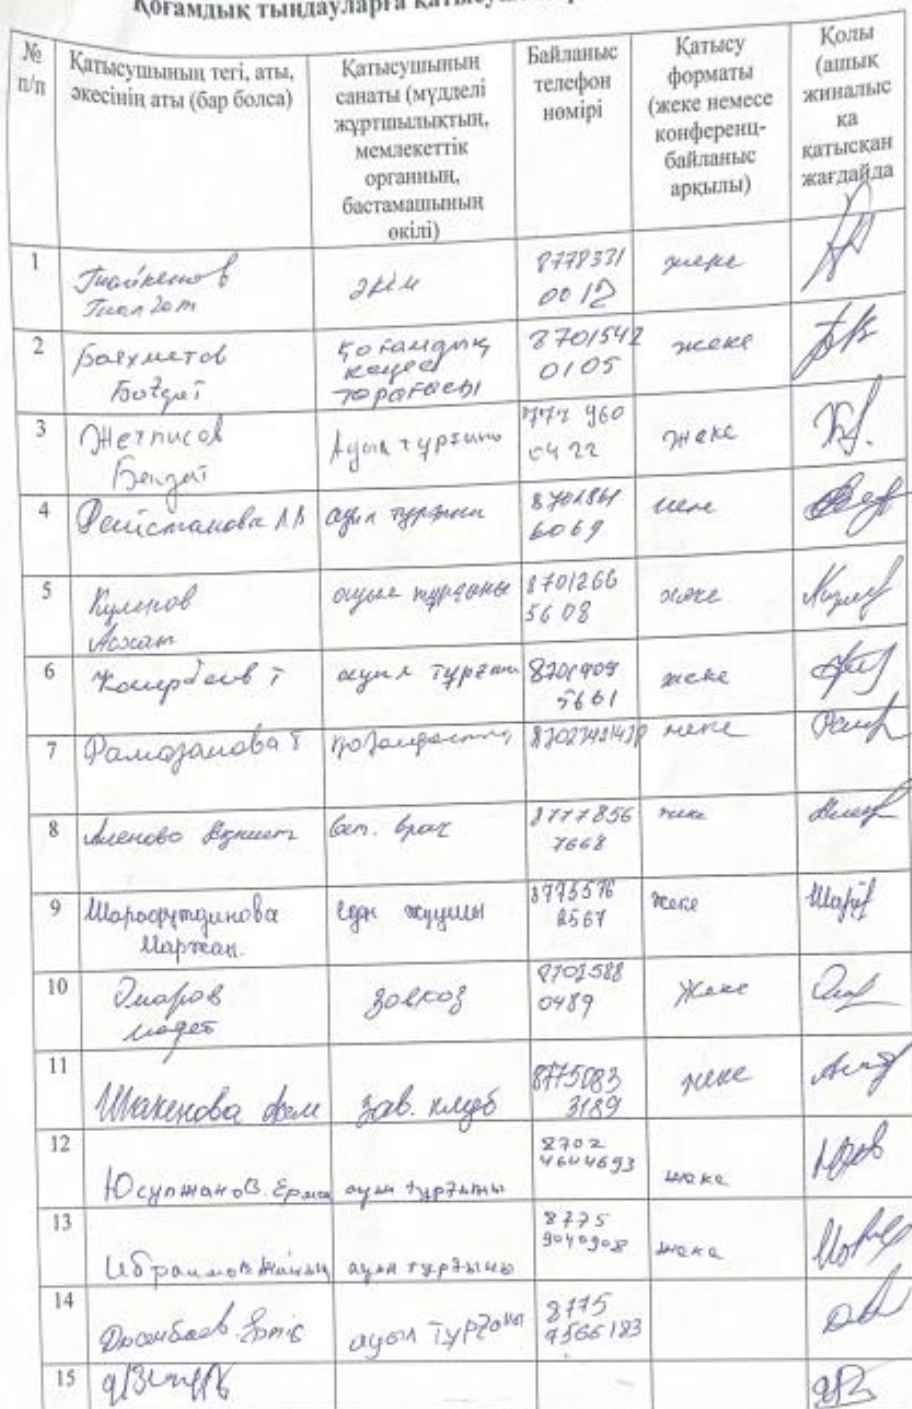 Қоғамдық тыңдауларға
№ п/п
Қатысушының тегі, аты,
әкесінің аты (бар болса)
Қатысушының
санаты (мүдделі
жұртшылықтың,
мемлекеттік
органның,
бастамашының
өкілі)
Байланыс
телефон
нөмірі
Қатысу
форматы
(жеке немесе
конференц-
байланыс
арқылы)
Қолы
(ашық
жиналыс
қа
қатысқан
жағдайда
1
әкім
8778331
0012
жеке
2
Баяхметов
Болат
қоғамдық
кеңес
төрағасы
8701542
0105
жеке
3
Жетписов
ауыл тұрғыны
771 960
04 22
жеке
4
ауыл тұрғыны
6069
жеке
5
Куленов
Асхат
ауыл тұрғыны
8701266
5608
жеке
6
ауыл тұрғыны
8701909
5661
жеке
7
Рамазанова Т
жеке
8
Аленова
вет. врач
8777856
7668
жеке
9
Шарафутдинова
Маржан.
еден жуушы
8775576
2567
жеке
10
Омаров
Мадет
завхоз
8702588
0489
Жеке
11
Шакенова
зав. клуб
8775083
3189
жеке
12
Юсупжанов. Ермек
ауыл тұрғыны
8702
4644693
жеке
13
Ибраимов
ауыл тұрғыны
8775
9040908
жеке
14
Досымбаев. Ерлік
ауыл тұрғыны
8775
7566183
15